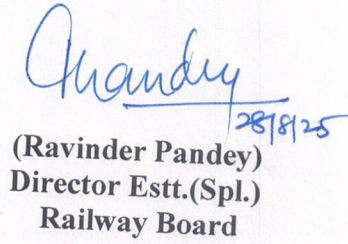 28/8/25
(Ravinder Pandey)
Director Estt.(Spl.)
Railway Board